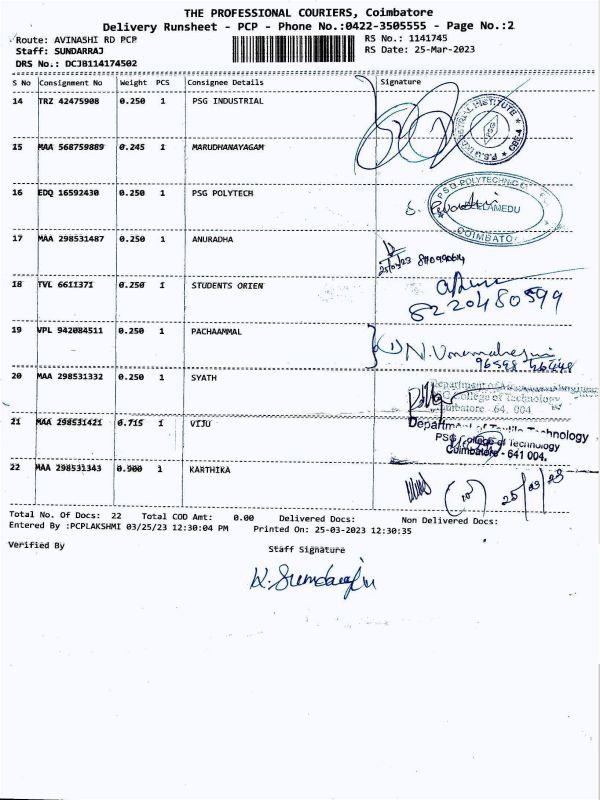 THE PROFESSIONAL COURIERS, Coimbatore
Delivery Runsheet - PCP - Phone No.:0422-3505555 - Page No.:2
Route: AVINASHI RD PCP RS No.: 1141745
Staff: SUNDARRAJ RS Date: 25-Mar-2023
DRS No.: DCJB114174502
S No Consignment No Weight PCS Consignee Details Signature
14 TRZ 42475908 0.250 1 PSG INDUSTRIAL
15 MAA 568759889 0.245 1 MARUDHANAYAGAM
16 EDQ 16592430 0.250 1 PSG POLYTECH
17 MAA 298531487 0.250 1 ANURADHA
25/03/23
18 TVL 6611371 0.250 1 STUDENTS ORIEN
8220480599
19 VPL 942084511 0.250 1 PACHAAMMAL
N. Umamaheswari
20 MAA 298531332 0.250 1 SYATH
College of Technology
64. 004
21 MAA 298531421 0.715 1 VIJU
Department of Textile Technology
PSG College of Technology
Coimbatore - 641 004.
22 MAA 298531343 0.900 1 KARTHIKA
25/03/23
Total No. Of Docs: 22 Total COD Amt: 0.00 Delivered Docs: Non Delivered Docs:
Entered By :PCPLAKSHMI 03/25/23 12:30:04 PM Printed On: 25-03-2023 12:30:35
Verified By Staff Signature
K. Sundarraj